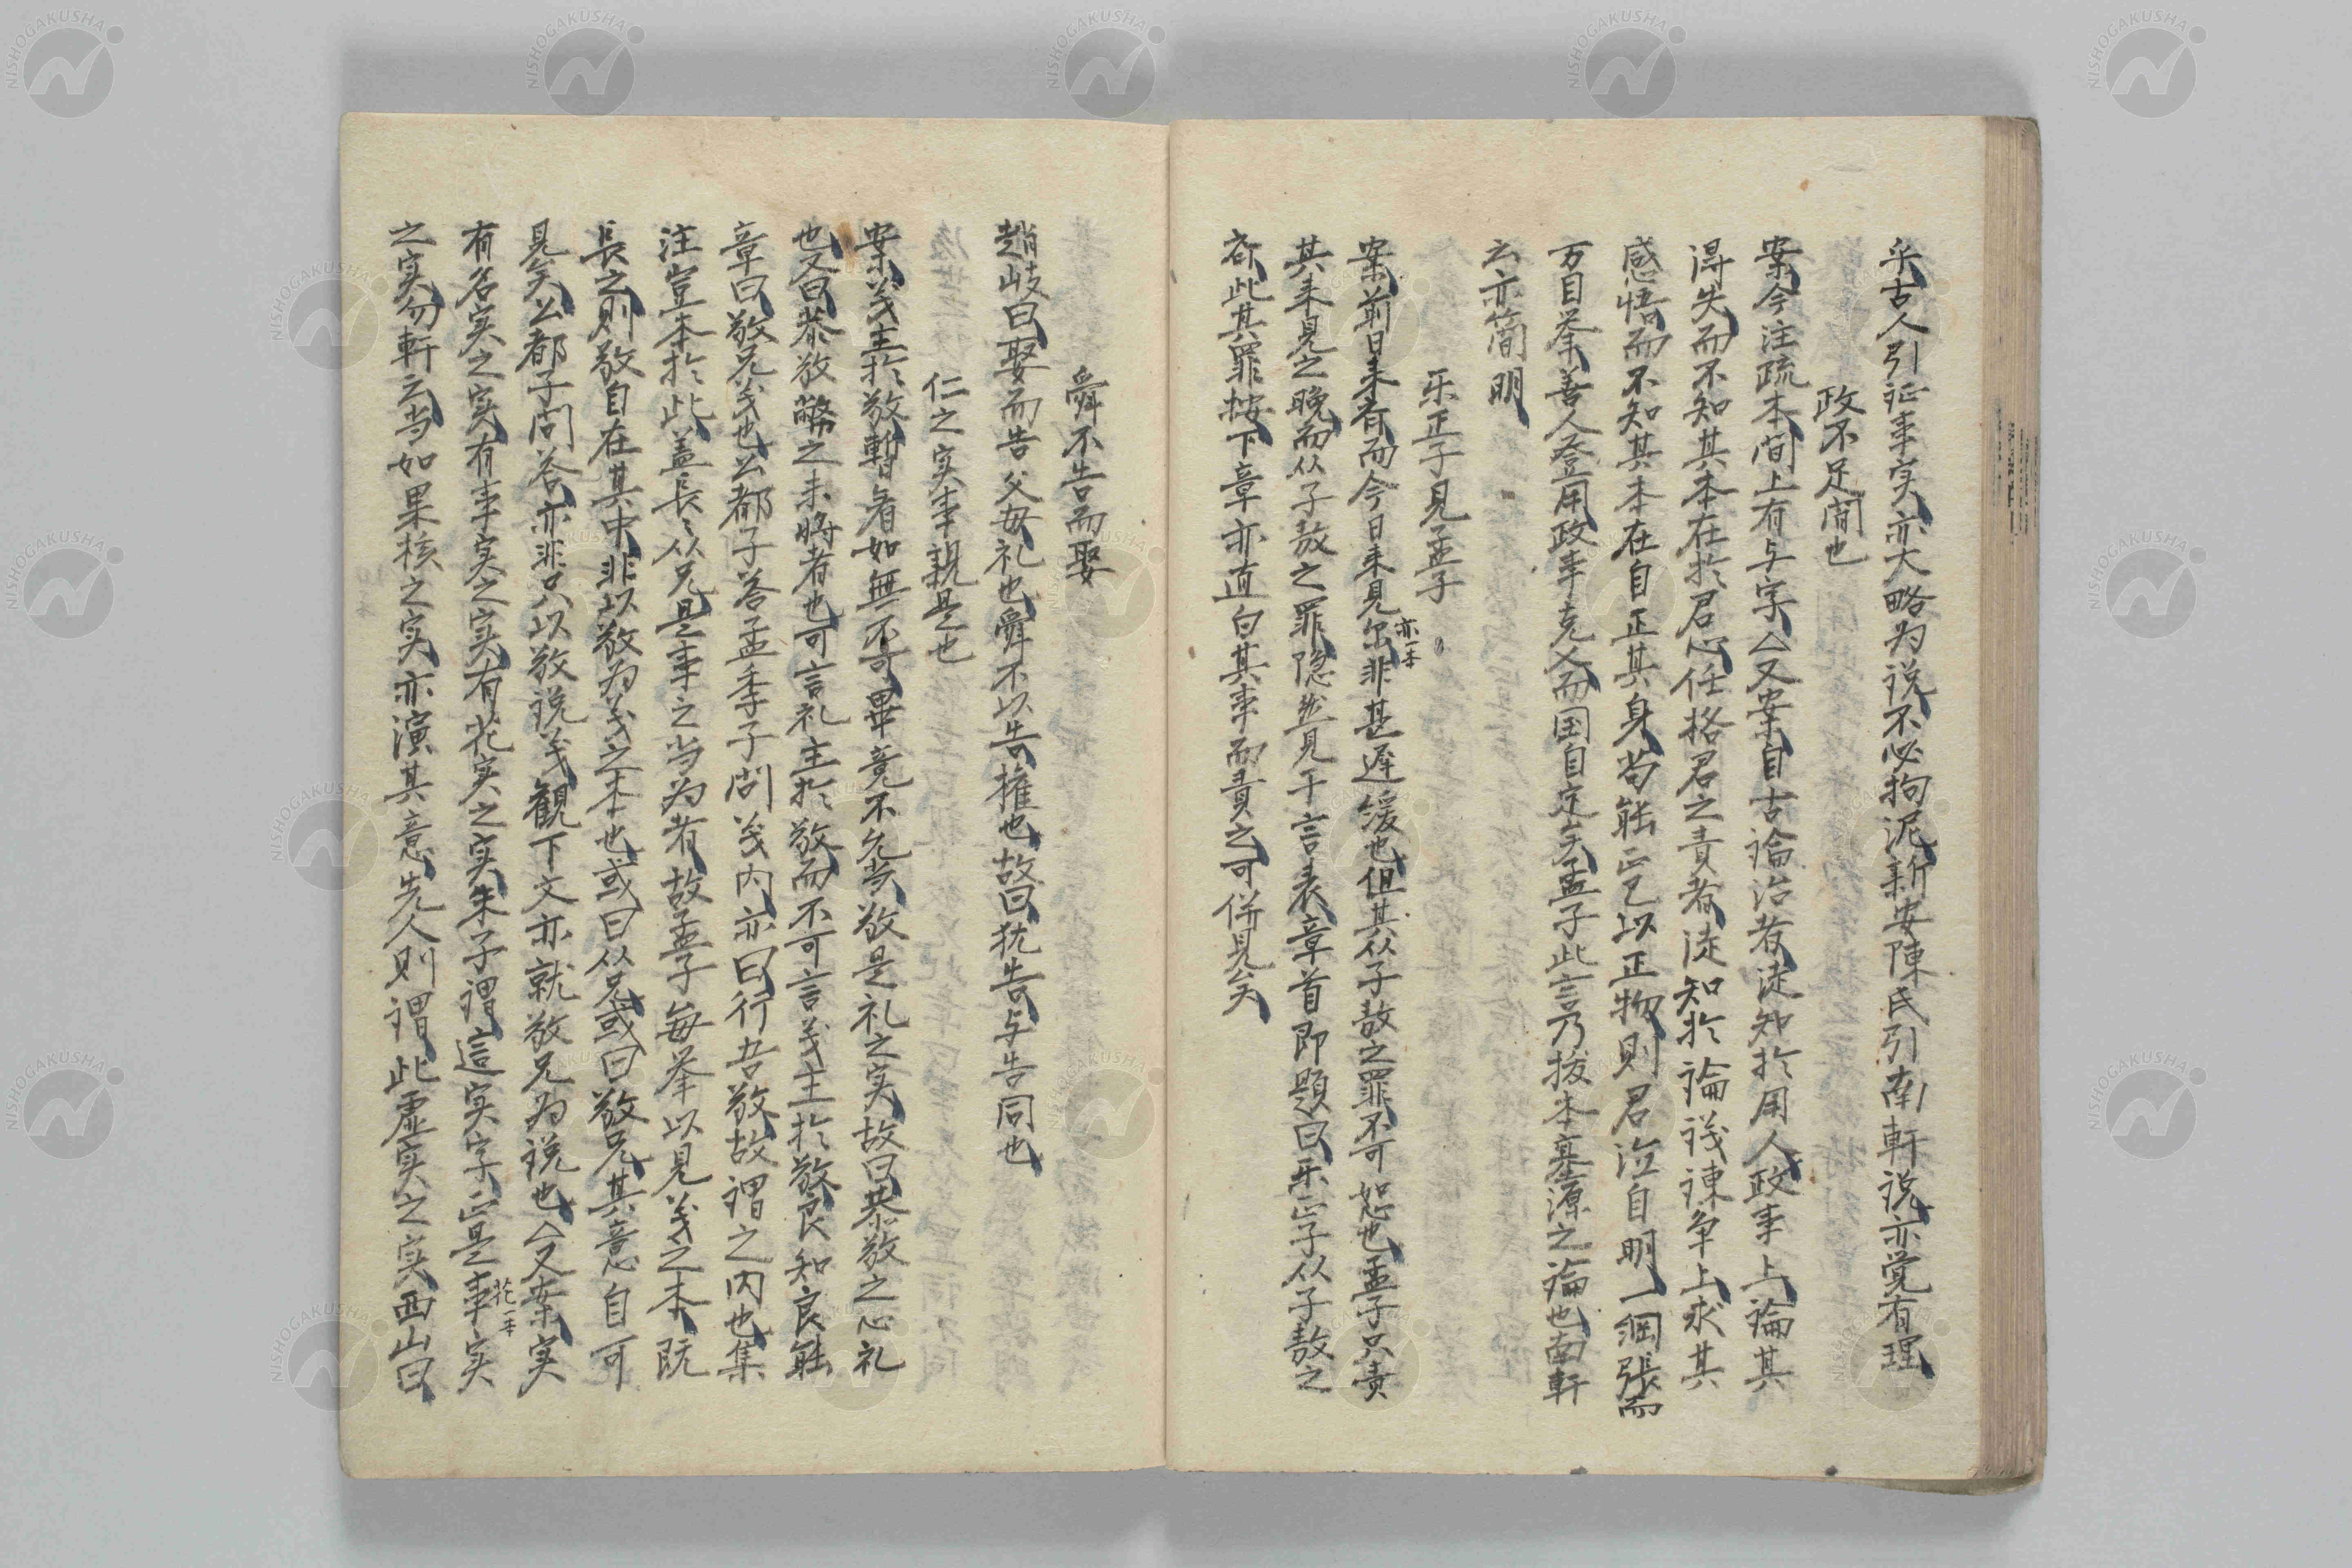 乎古人引证事实亦大略为说不必拘泥新安陳氏引南軒説亦覚有理
政不足間也
案今注疏本間上有与字△又案自古論治者徒知於用人政事上論其
得失而不知其本在於君心任格君之責者徒知於論議諫争上求其
感悟而不知其本在自正其身苟能正己以正物則君心自明一綱張而
万目挙善人登用政事克乂而国自定矣孟子此言乃抜本塞源之論也南軒
云亦簡明
乐正子見孟子
案前日来者而今日来見尓非甚遅緩也但其从子敖之罪不可恕也孟子只責
亦一本
其来見之晩而从子敖之罪隐然見于言表章首即題曰乐正子从子敖之
斉此其罪按下章亦直白其事而責之可併見矣
舜不告而娶
趙岐曰娶而告父母礼也舜不以告権也故曰犹告与告同也
仁之实事親是也
案义主於敬暫看如無不可畢竟不允当敬是礼之实故曰恭敬之心礼
也又曰恭敬幣之未将者也可言礼主於敬而不可言义主於敬良知良能
章曰敬兄义也公都子答孟季子問义内亦曰行吾敬故謂之内也集
注豈本於此盖長〻从兄是事之当为者故孟子每挙以見义之本既
長之則敬自在其中非以敬为义之本也或曰从兄或曰敬兄其意自可
見矣公都子問答亦非只以敬説义観下文亦就敬兄为説也△又案实
有名实之实有事实之实有花实之实朱子謂這实字正是事实
花一本
之实勿軒云当如果核之实亦演其意先人則謂此虚实之实西山曰